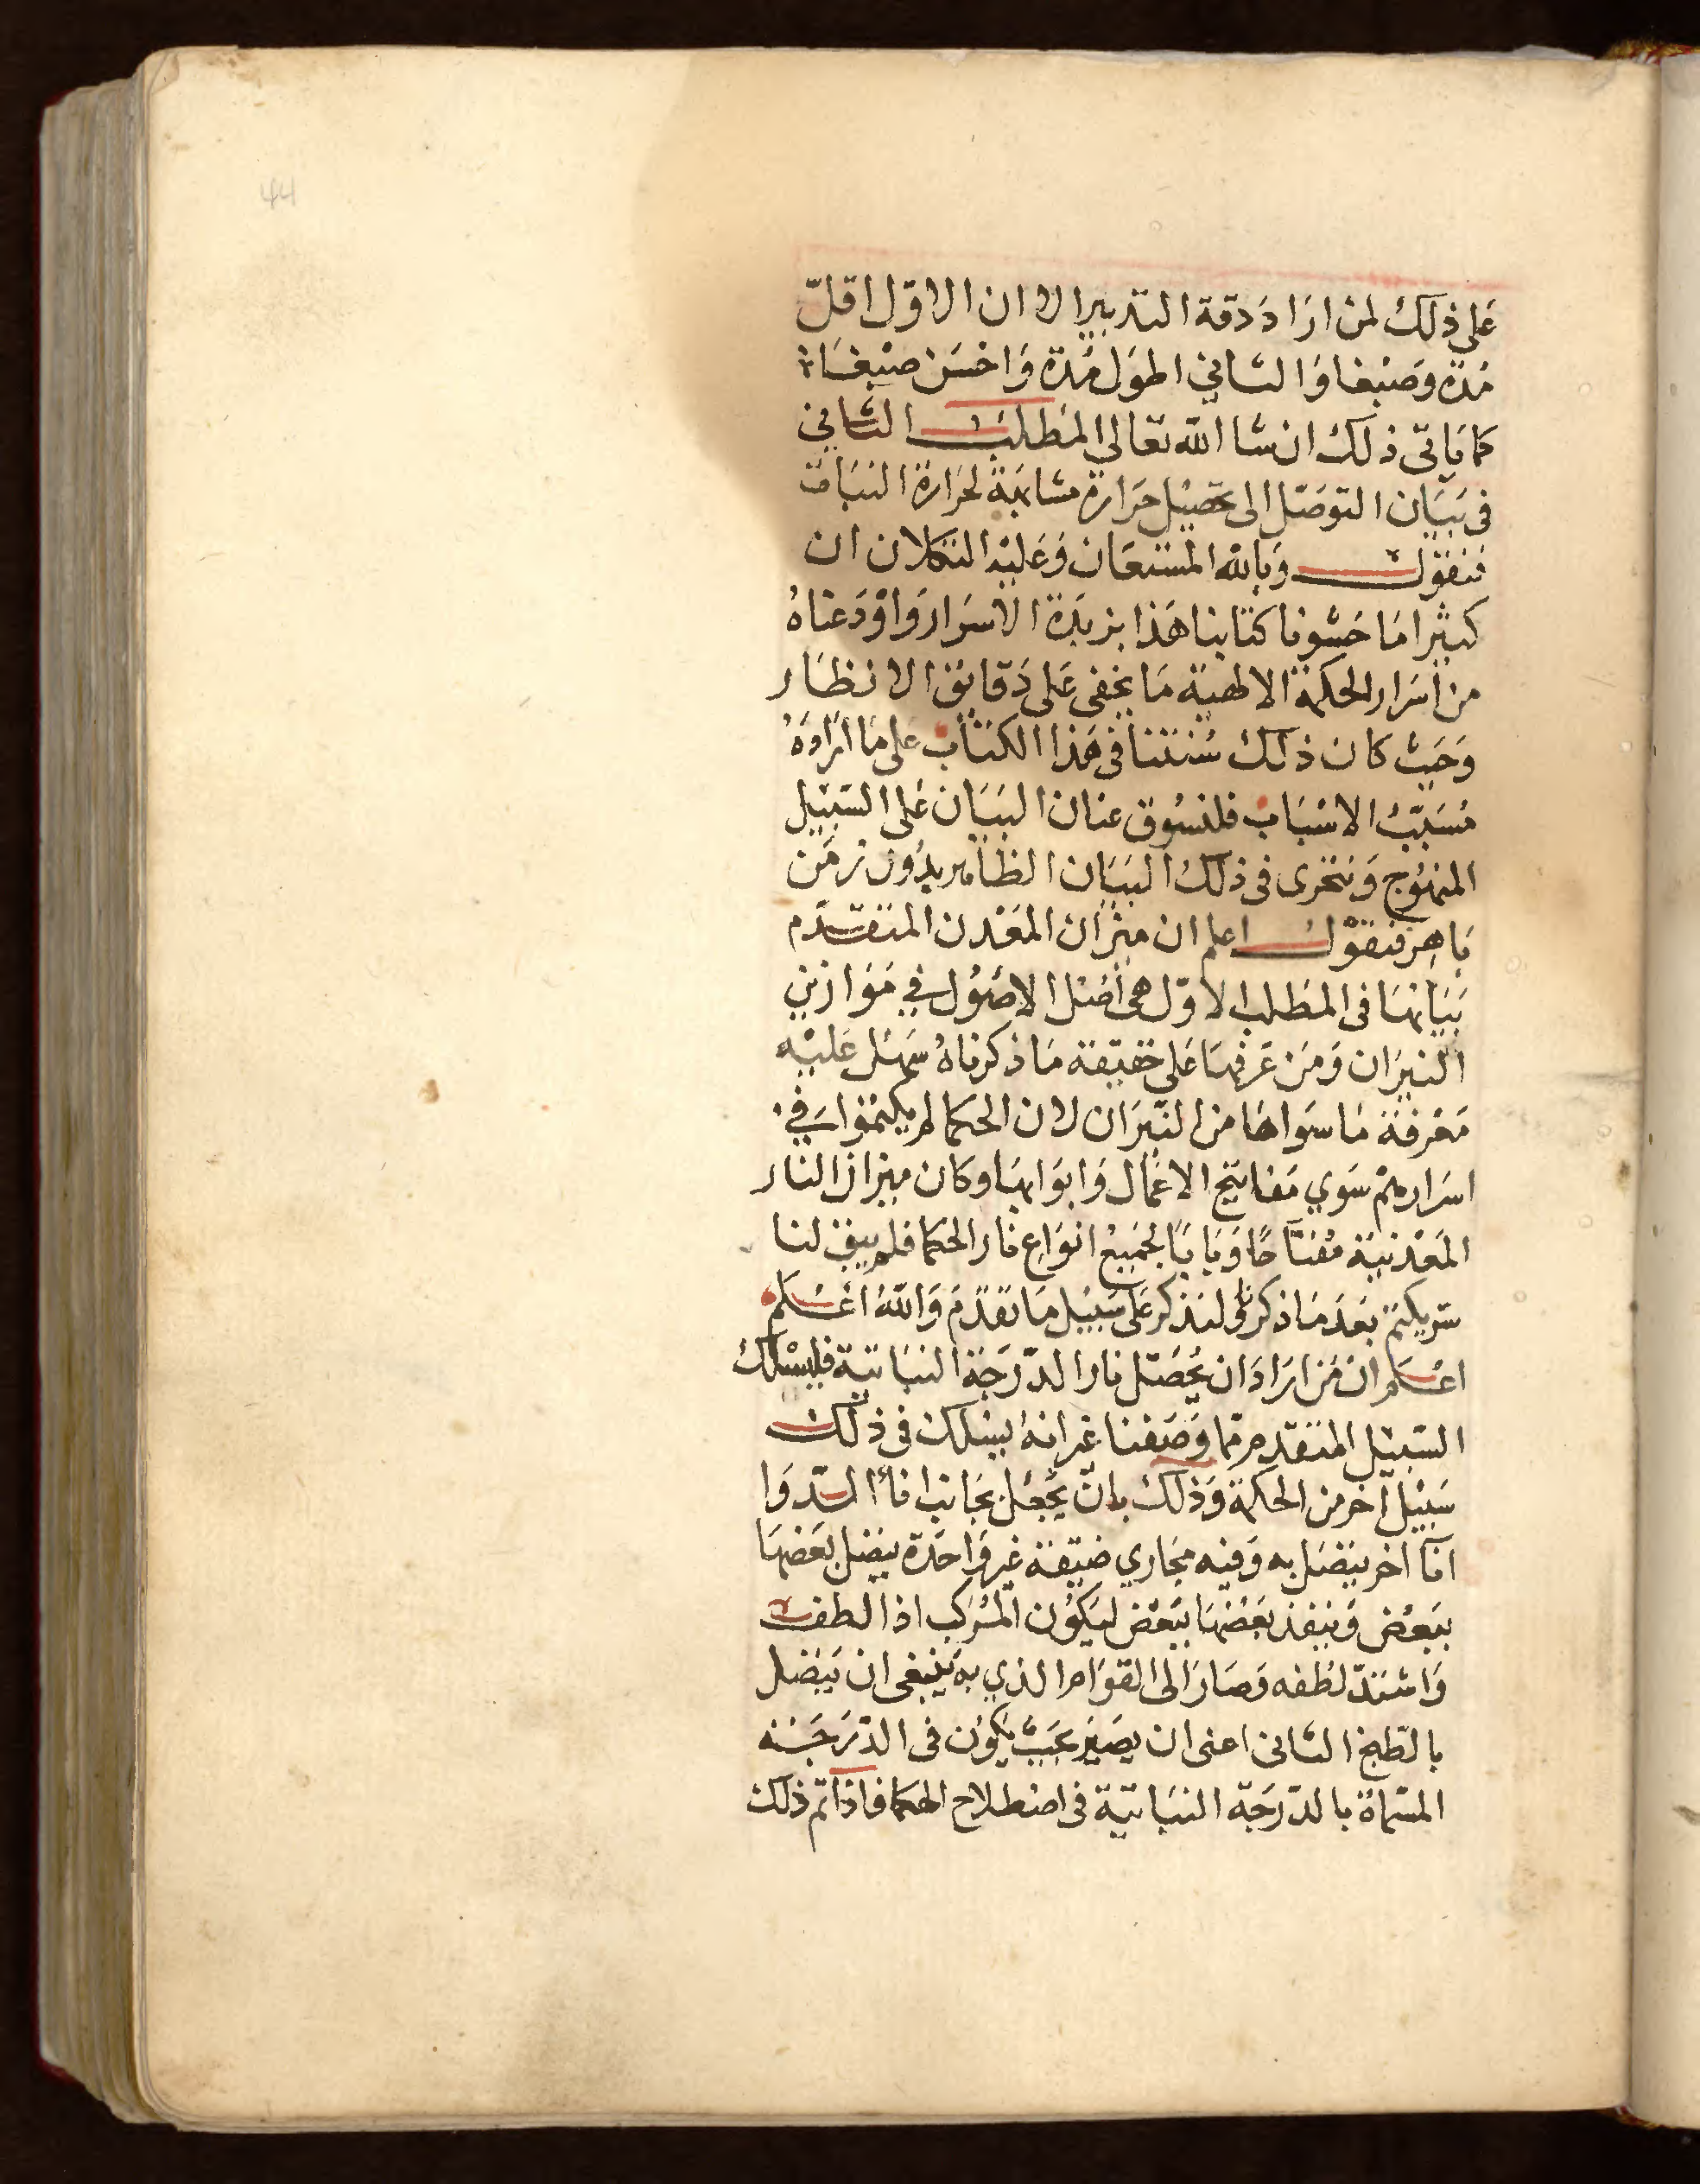 44
على ذلك لمن اراد دقة التدبير الا ان الاول اقل
مدة وصبغا والثاني اطول مدة واحسن صبغا
كما ياتى ذلك ان شا الله تعالى المطلب الثاني
فى بيان التوصل الى تحصيل حرارة مشابهة لحرارة النبات
فنقول وبالله المستعان وعليه التكلان ان
كثيرا ما حشونا كتابنا هذا بزبدة الاسرار واودعناه
من اسرار الحكمة الالهية ما يخفى على دقايق الانظار
وحيث كان ذلك سنتنا فى هذا الكتاب على ما اراده
مسبب الاسباب فلنسوق عنان البيان على السبيل
المنهوج ونتحرى فى ذلك البيان الظاهر بدون رمز
باهر فنقول اعلم ان ميزان المعدن المتقدم
بيانها فى المطلب الاول هى اصل الاصول في موازين
النيران ومن عرفها على حقيقة ما ذكرناه سهل عليه
معرفة ما سواها من النيران لان الحكما لم يكتموا في
اسرارهم سوي مفاتيح الاعمال وابوابها وكان ميزان النار
المعدنية مفتاحا وبابا لجميع انواع نار الحكما فلم يبق لنا
سر يكتم بعد ما ذكرنا ولنذكر على سبيل ما تقدم والله اعلم
اعلم ان من اراد ان يحصل نار الدرجة النباتية فليسلك
السبيل المتقدم مما وصفنا غير انه يسلك فى ذلك
سبيل آخر من الحكمة وذلك بان يجعل بجانب اناء الدوا
انآ اخر يتصل به وفيه مجاري ضيقة غير واحدة يتصل بعضها
ببعض وينفذ بعضها ببعض ليكون المركب اذا لطف
واشتد لطفه وصار الى القوام الذي به ينبغى ان يتصل
بالطبخ الثانى اعنى ان يصير بحيث يكون فى الدرجة
المسماة بالدرجة النباتية فى اصطلاح الحكما فاذا تم ذلك